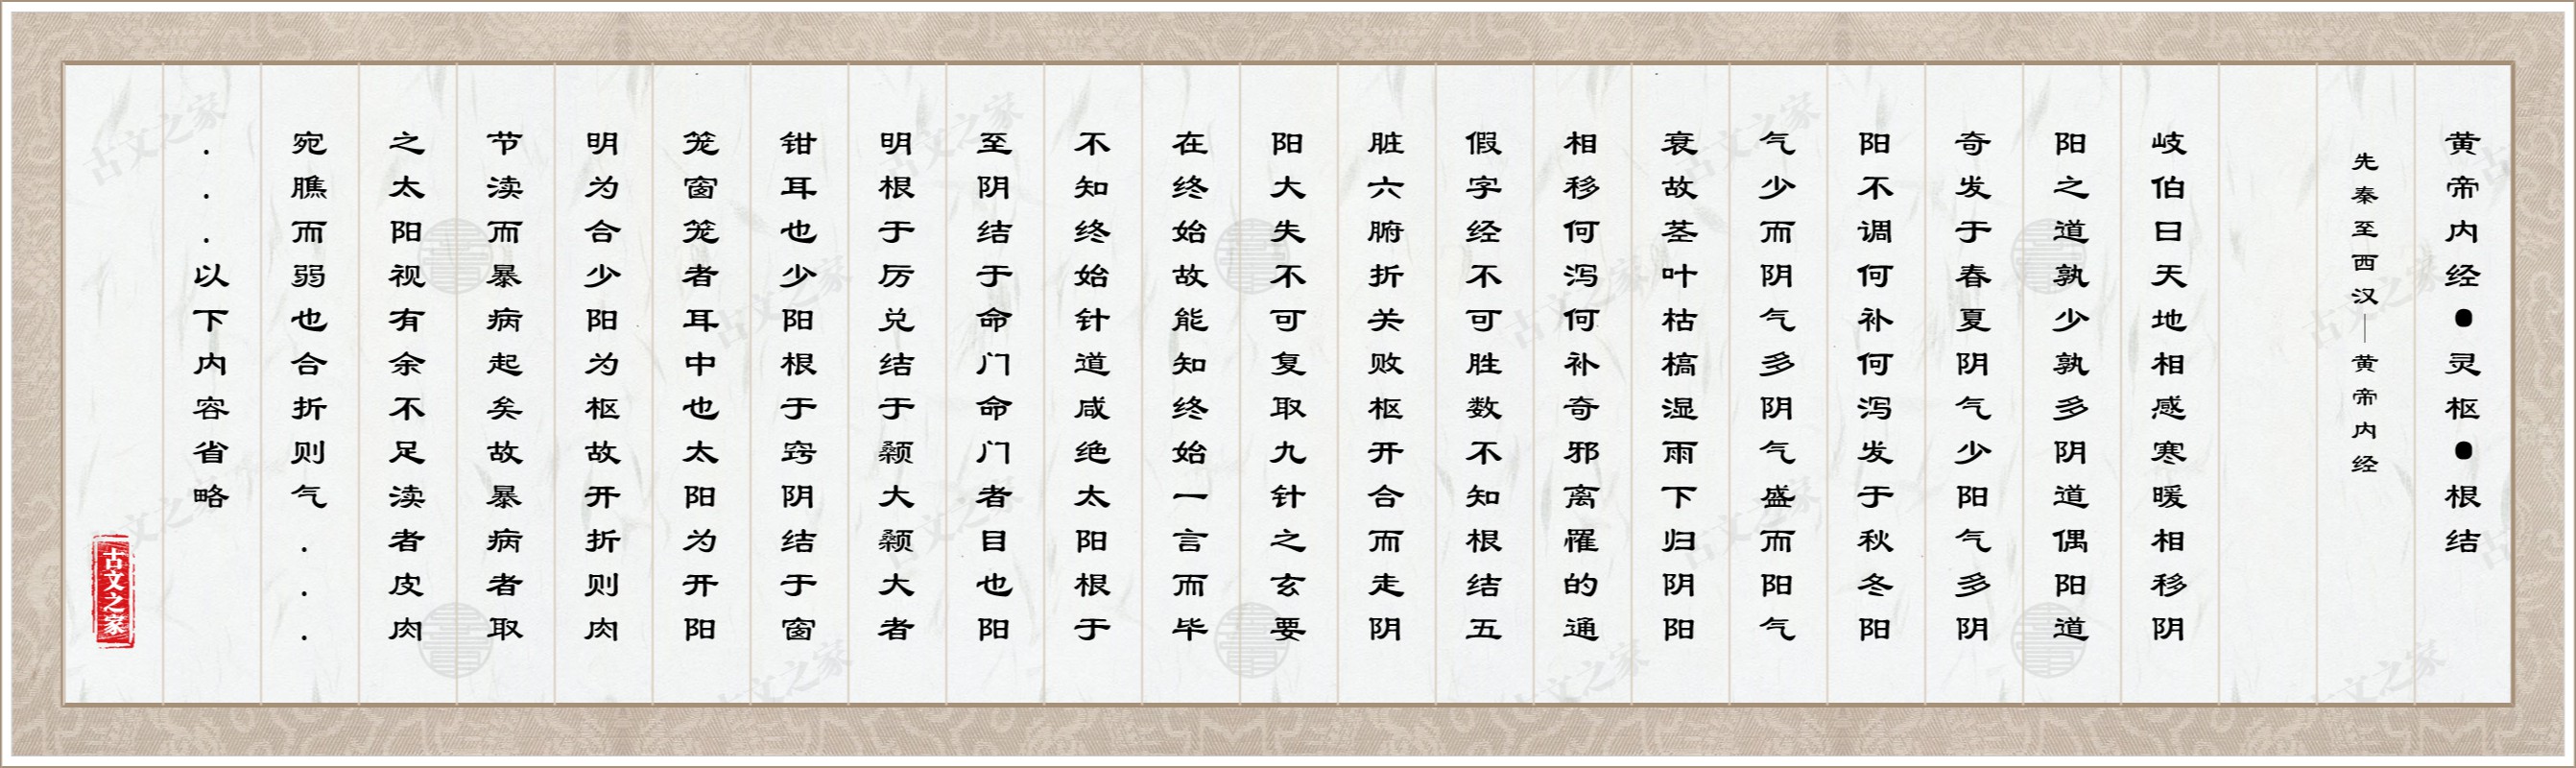 黄帝内经●灵枢●根结
先秦至西汉—黄帝内经
岐伯曰天地相感寒暖相移阴
阳之道孰少孰多阴道偶阳道
奇发于春夏阴气少阳气多阴
阳不调何补何泻发于秋冬阳
气少而阴气多阴气盛而阳气
衰故茎叶枯槁湿雨下归阴阳
相移何泻何补奇邪离罹的通
假字经不可胜数不知根结五
脏六腑折关败枢开合而走阴
阳大失不可复取九针之玄要
在终始故能知终始一言而毕
不知终始针道咸绝太阳根于
至阴结于命门命门者目也阳
明根于厉兑结于颡大颡大者
钳耳也少阳根于窍阴结于窗
笼窗笼者耳中也太阳为开阳
明为合少阳为枢故开折则肉
节渎而暴病起矣故暴病者取
之太阳视有余不足渎者皮肉
宛膲而弱也合折则气...
...以下内容省略
古文之家